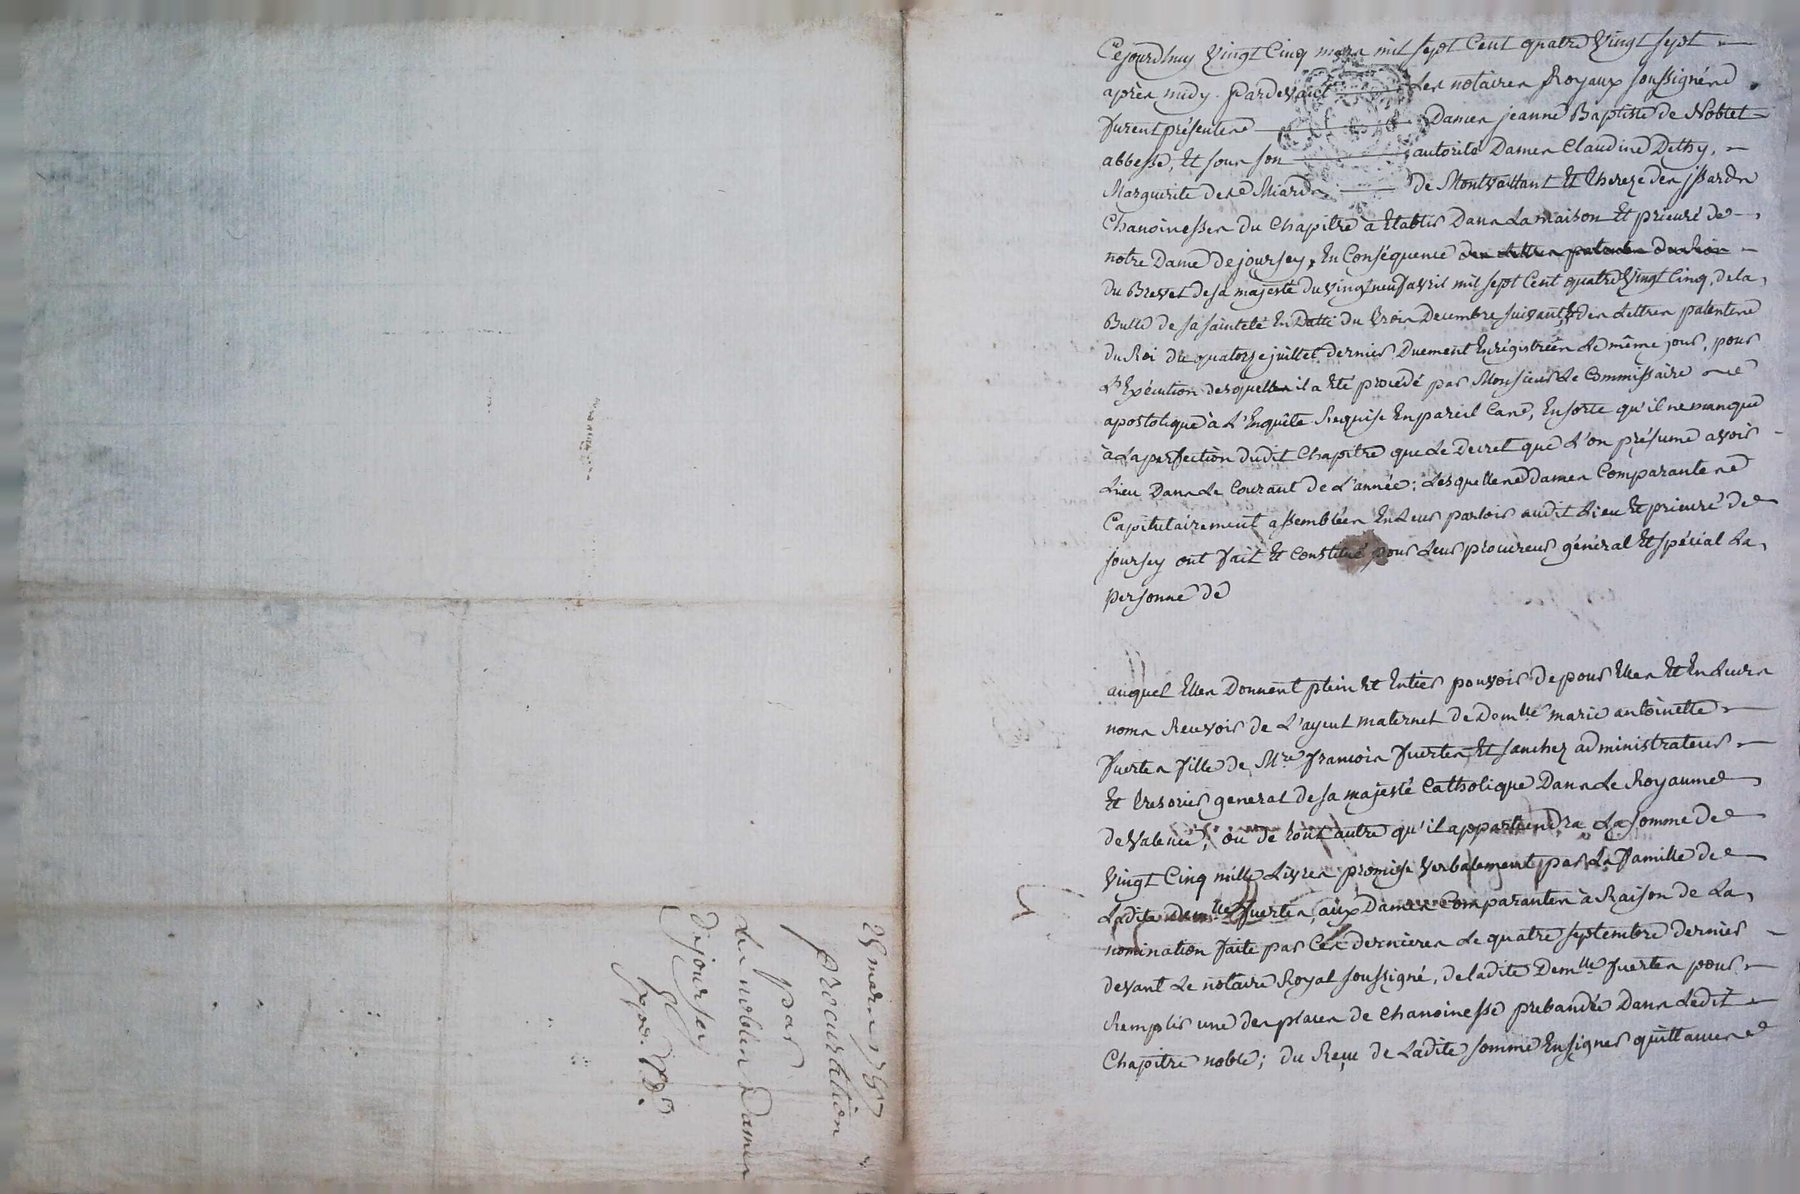 25 mars 1787
procuration
par
Les nobles Dames
de joursey
Cejourdhuy Vingt Cinq mars mil sept Cent quatre Vingt sept
après midy. Pardevant Les notaires Royaux soussignés
furent présentes Dames jeanne Baptiste de Noblet
abbesse, Et sous son autorité Dames Claudine Dethy,
Marguerite des Miards de Montvaillant Et Thereze des jssards
Chanoinesses du Chapitre à Etablir Dans La maison Et prieuré de
notre Dame de joursey, En Conséquence des Lettres patentes du Roi
du Brevet de sa majesté du vingt neuf avril mil sept Cent quatre Vingt Cinq, de la
Bulle de sa sainteté En Datte du trois Decembre suivant, & des Lettres patentes
du Roi du quatorze juillet dernier Duement Enrégistrées Le même jour, pour
L'Exécution desquelles il a Eté procédé par Monsieur Le Commissaire
apostolique à L'Enquête Requise En pareil Cas, Ensorte qu'il ne manque
à La perfection dudit Chapitre que Le Decret que L'on présume avoir
Lieu Dans Le Courant de L'année: Lesquelles Dames Comparantes
Capitulairement assemblées En Leur parloir audit Lieu Et prieuré de
joursey ont fait Et Constitué pour Leur procureur général Et spécial La
personne de
auquel Elles Donnent plein Et Entier pouvoir de pour Elles Et En Leurs
noms Recevoir de L'ayeul maternel de Demlle marie antoinette
fuertes fille de Mre françois fuertes, Et sanchez administrateur
Et tresorier general de sa majesté Catholique Dans Le Royaume
de Valence, ou de tout autre qu'il appartiendra La somme de
Vingt Cinq mille Livres promise verbalement par La famille de
Ladite Demlle fuertes, aux Dames Comparantes à Raison de La
nomination faite par Ces dernieres Le quatre septembre dernier
devant Le notaire Royal soussigné, de ladite Demlle fuertes pour
Remplir une des places de Chanoinesse prebandée Dans Ledit
Chapitre noble; du Reçu de Ladite somme En signer quittances